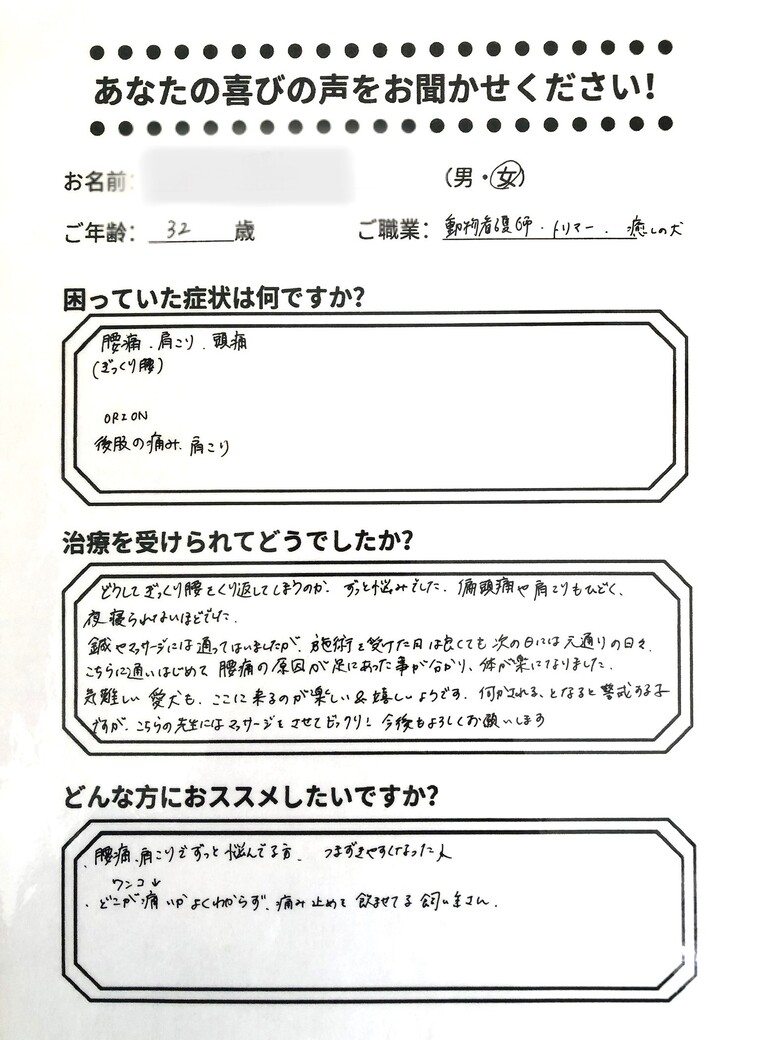 あなたの喜びの声をお聞かせください!
お名前: (男・女)
ご年齢: 32 歳 ご職業: 動物看護師・トリマー・癒しの犬
困っていた症状は何ですか?
腰痛、肩こり、頭痛
(ぎっくり腰)
ORION
後股の痛み、肩こり
治療を受けられてどうでしたか?
どうしてぎっくり腰をくり返してしまうのか、ずっと悩みでした。偏頭痛や肩こりもひどく、
夜寝られないほどでした。
鍼やマッサージには通ってはいましたが、施術を受けた日は良くても次の日には元通りの日々。
こちらに通いはじめて腰痛の原因が足にあった事が分かり、体が楽になりました。
気難しい愛犬も、ここに来るのが楽しい&嬉しいようです。何かされる、となると警戒する子
ですが、こちらの先生にはマッサージをさせてビックリ!今後もよろしくお願いします
どんな方におススメしたいですか?
・腰痛、肩こりでずっと悩んでる方、つまずきやすくなった人
ワンコ↓
・どこが痛いかよくわからず、痛み止めを飲ませてる飼い主さん。